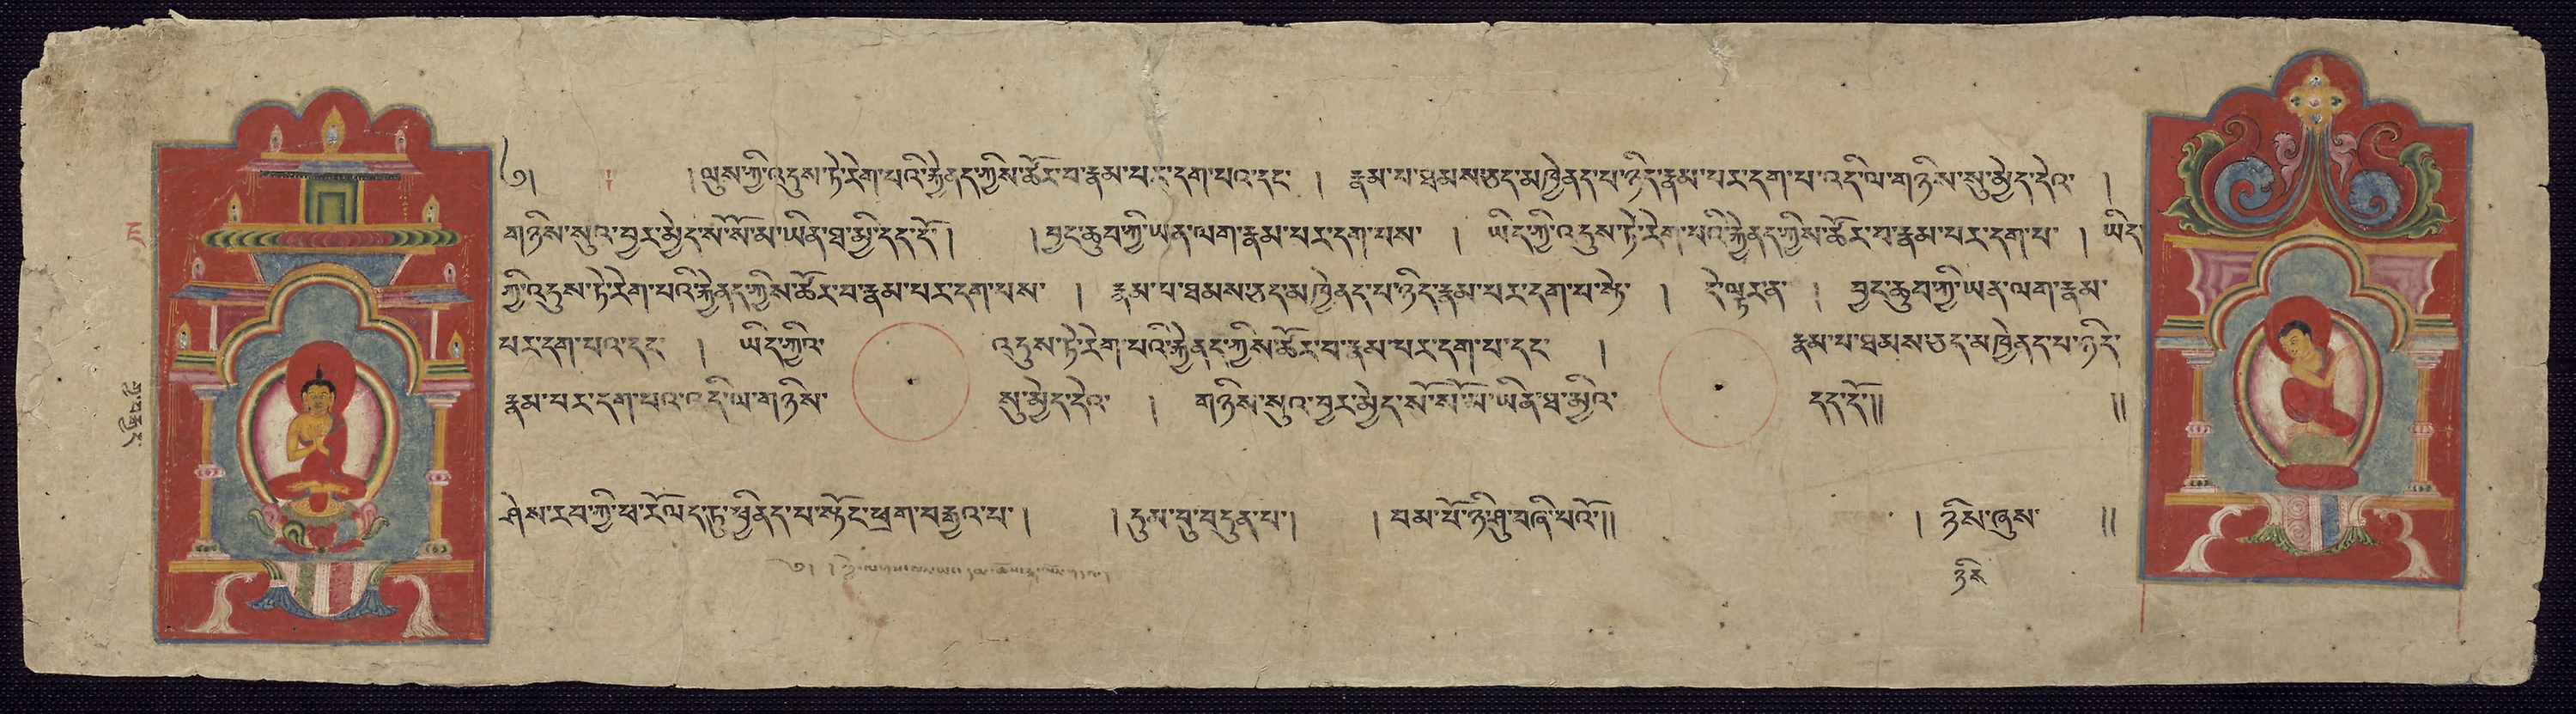 ༄། །ལུས་ཀྱི་འདུས་ཏེ་རེག་པའི་རྐྱེནད་ཀྱིས་ཚོར་བ་རྣམ་པར་དག་པའ་དང་ ། རྣམ་པ་ཐམས་ཅད་མཁྱེནད་པ་ཉིད་རྣམ་པར་དག་པ་འདི་ལ་གཉིས་སུ་མྱེད་དེའ་ །
གཉིས་སུའ་བྱར་མྱེད་སོ་སོ་མ་ཡིན་ཐ་མྱི་དད་དོ་། །བྱང་ཆུབ་ཀྱི་ཡན་ལག་རྣམ་པར་དག་པས་ ། ཡིད་ཀྱི་འདུས་ཏེ་རེག་པའི་རྐྱེནད་ཀྱིས་ཚོར་བ་རྣམ་པར་དག་པ་ ། ཡིད་
ཀྱི་འདུས་ཏེ་རེག་པའི་རྐྱེནད་ཀྱིས་ཚོར་བ་རྣམ་པར་དག་པས་ ། རྣམ་པ་ཐམས་ཅད་མཁྱེནད་པ་ཉིད་རྣམ་པར་དག་པ་སྟེ་ ། དེ་ལྟརན་ ། བྱང་ཆུབ་ཀྱི་ཡན་ལག་རྣམ་
པར་དག་པའ་དང་ ། ཡིད་ཀྱིའི་ འདུས་ཏེ་རེག་པའི་རྐྱེནད་ཀྱིས་ཚོར་བ་རྣམ་པར་དག་པ་དང་ ། རྣམ་པ་ཐམས་ཅད་མཁྱེནད་པ་ཉིད་
རྣམ་པར་དག་པའ་འདི་ལ་གཉིས་ སུ་མྱེད་དེའ་ ། གཉིས་སུའ་བྱར་མྱེད་སོ་སོ་མ་ཡིན་ཐ་མྱིའི་ དད་དོ་།། །།
ཤེས་རབ་ཀྱི་ཕ་རོལད་ཏུ་ཕྱིནད་པ་སྟོང་ཕྲག་བརྒྱའ་པ་། །དུམ་བུ་བདུན་པ་། །བམ་པོ་ཉི་ཤུ་བཞི་པའོ་།། ། ཉིས་ཞུས་ །།